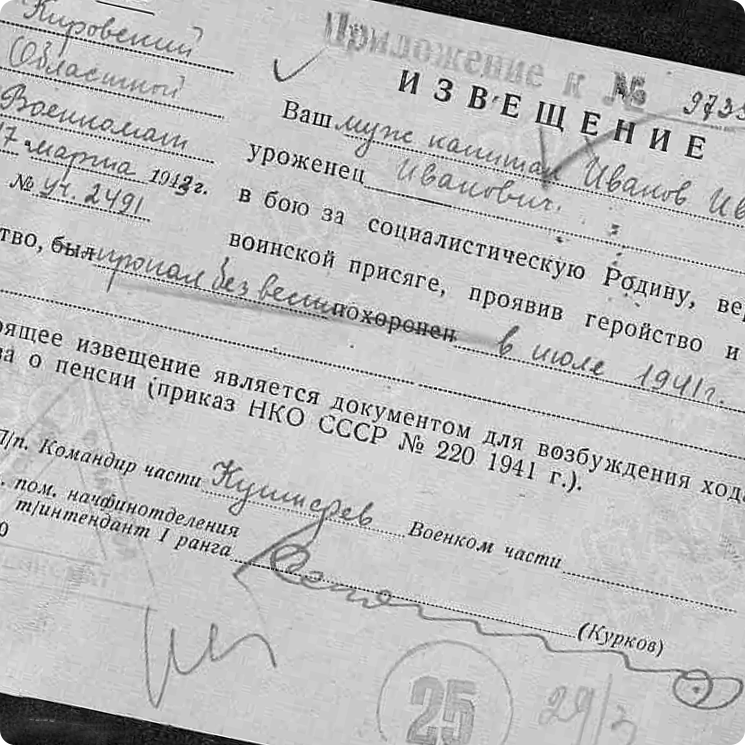 Приложение к № 973
ИЗВЕЩЕНИЕ
Кировский
Областной
Военкомат
17 марта 1943 г.
№ уч. 2491
Ваш муж капитан Иванов Ив
уроженец Иванович.
в бою за социалистическую Родину, вер
воинской присяге, проявив геройство и
тво, был пропал без вести похоронен в июле 1941 г.
оящее извещение является документом для возбуждения ход
ва о пенсии (приказ НКО СССР № 220 1941 г.).
П/п. Командир части Кушнарев Военком части
. пом. начфинотделения
т/интендант I ранга
(Курков)
25
29/3